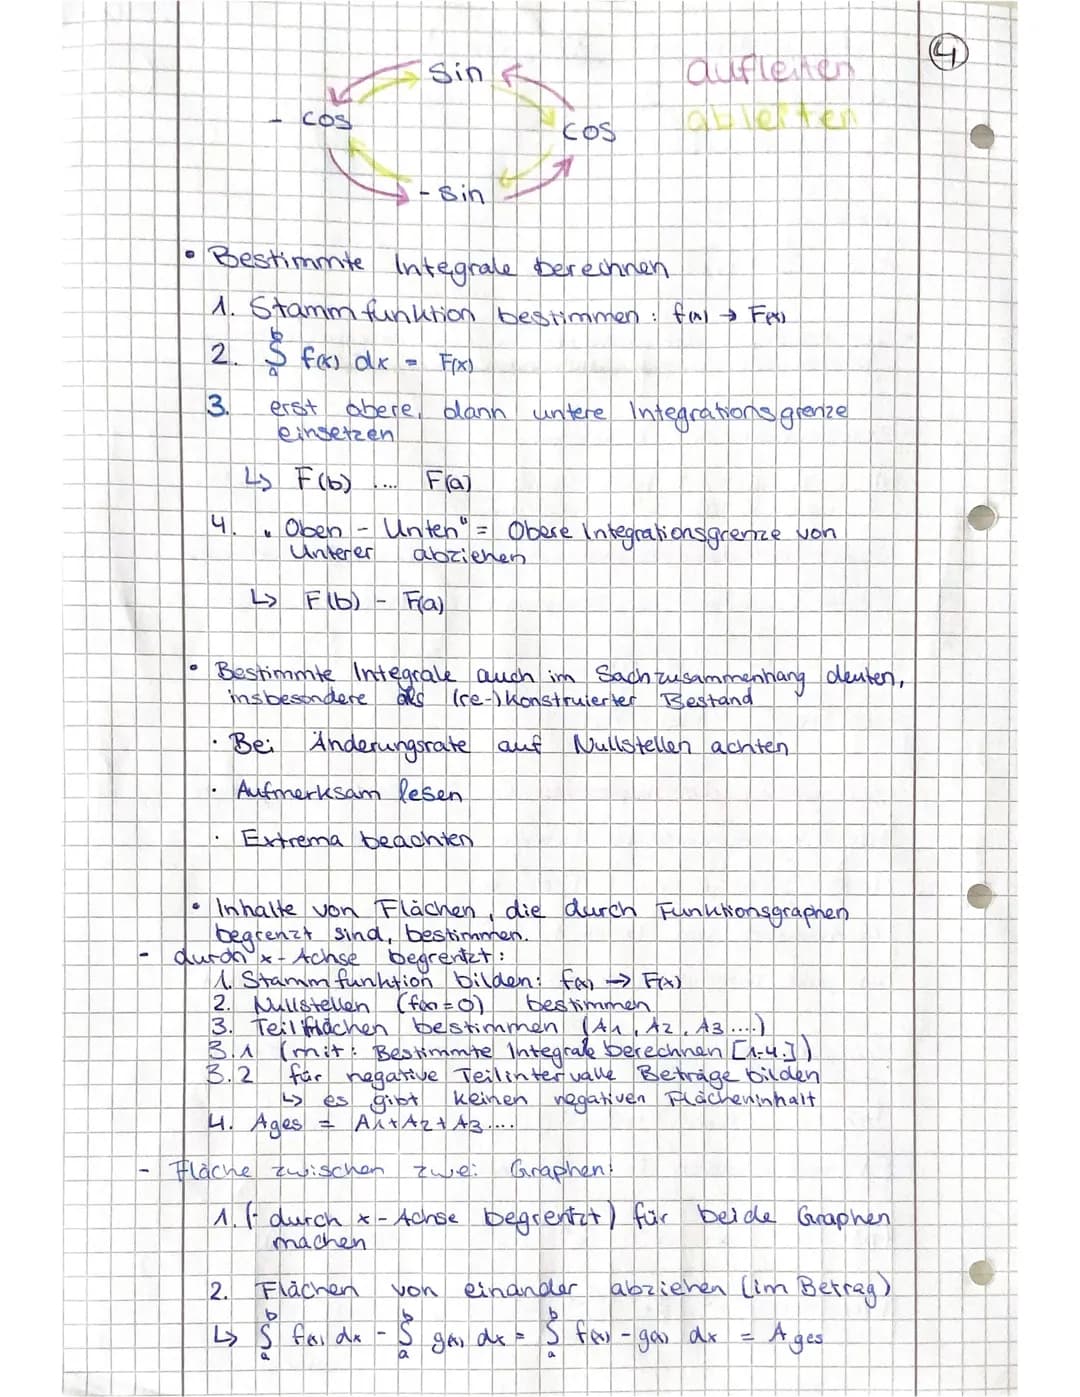 4
sin
aufleiten
- cos
cos
ableiten
- sin
• Bestimmte Integrale berechnen
1. Stammfunktion bestimmen : f(x) → F(x)
2. ᵇ∫ₐ f(x) dx = F(x)
3. erst obere, dann untere Integrationsgrenze
einsetzen
↳ F(b) .... F(a)
4. „Oben - Unten" = Obere Integrationsgrenze von
Unterer abziehen
↳ F(b) - F(a)
• Bestimmte Integrale auch im Sachzusammenhang deuten,
insbesondere als (re-)konstruierter Bestand
· Bei Änderungsrate auf Nullstellen achten
· Aufmerksam lesen
· Extrema beachten
• Inhalte von Flächen, die durch Funktionsgraphen
begrenzt sind, bestimmen.
- durch x-Achse begrentzt:
1. Stammfunktion bilden: f(x) → F(x)
2. Nullstellen (f(x)=0) bestimmen
3. Teilflächen bestimmen (A1, A2, A3....)
3.1 (mit: Bestimmte Integrale berechnen [1.-4.])
3.2 für negative Teilintervalle Beträge bilden
↳ es gibt keinen negativen Flächeninhalt
4. Ages = A1+A2+A3....
- Fläche zwischen zwei Graphen:
1. (- durch x-Achse begrentzt) für beide Graphen
machen
2. Flächen von einander abziehen (im Betrag)
↳ ᵇ∫ₐ f(x) dx - ᵇ∫ₐ g(x) dx = ᵇ∫ₐ f(x) - g(x) dx = Ages